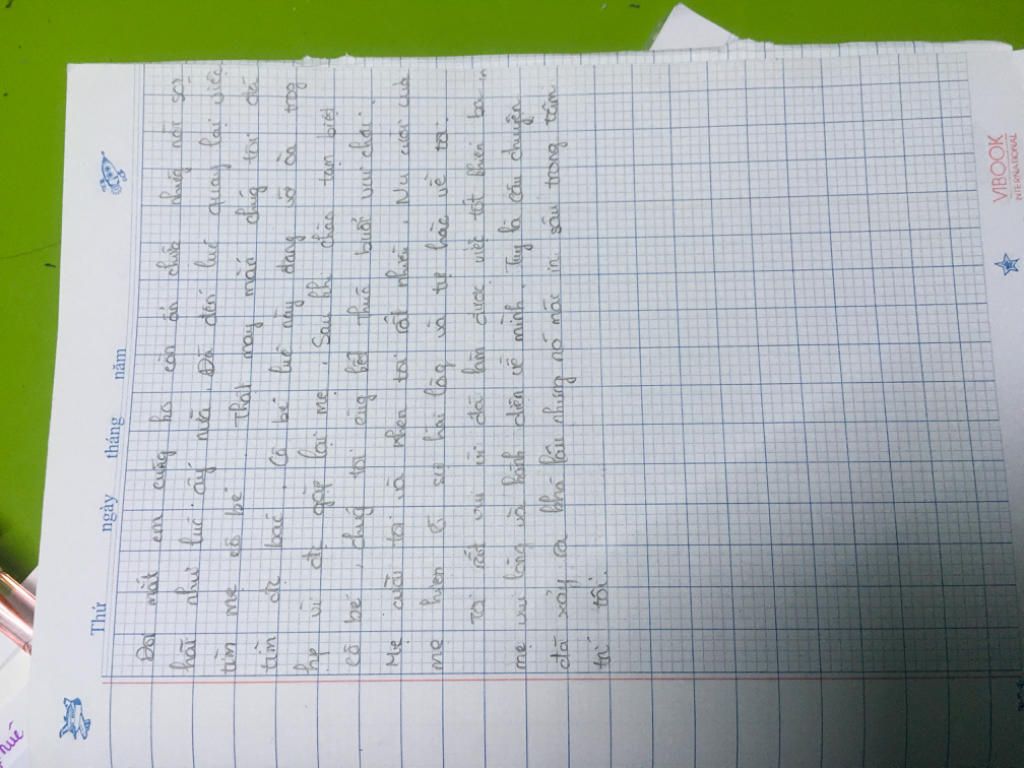 Thứ ngày tháng năm
Đôi mắt em cũng ko còn ẩn chứa những nỗi sợ
hãi như lúc ấy nữa. Đã đến lúc quay lại việc
tìm mẹ cô bé. Thật may mắn chúng tôi đã
tìm đc bác. Cô bé lúc này đang vỡ òa trog
hp vì đc gặp lại mẹ. Sau khi chào tạm biệt
cô bé, chúg tôi cũg kết thúc buổi vui chơi.
Mẹ cười tôi và khen tôi rất nhiều. Nụ cười của
mẹ hiện rõ sự hài lòg và tự hào về tôi.
Tôi rất vui vì đã làm được việc tốt khiến ba
mẹ vui lòng và hãnh diện về mình. Tuy là câu chuyện
đã xảy ra khá lâu nhưng nó mãi in sâu trong tâm
trí tôi.
VIBOOK
INTERNATIONAL
huê